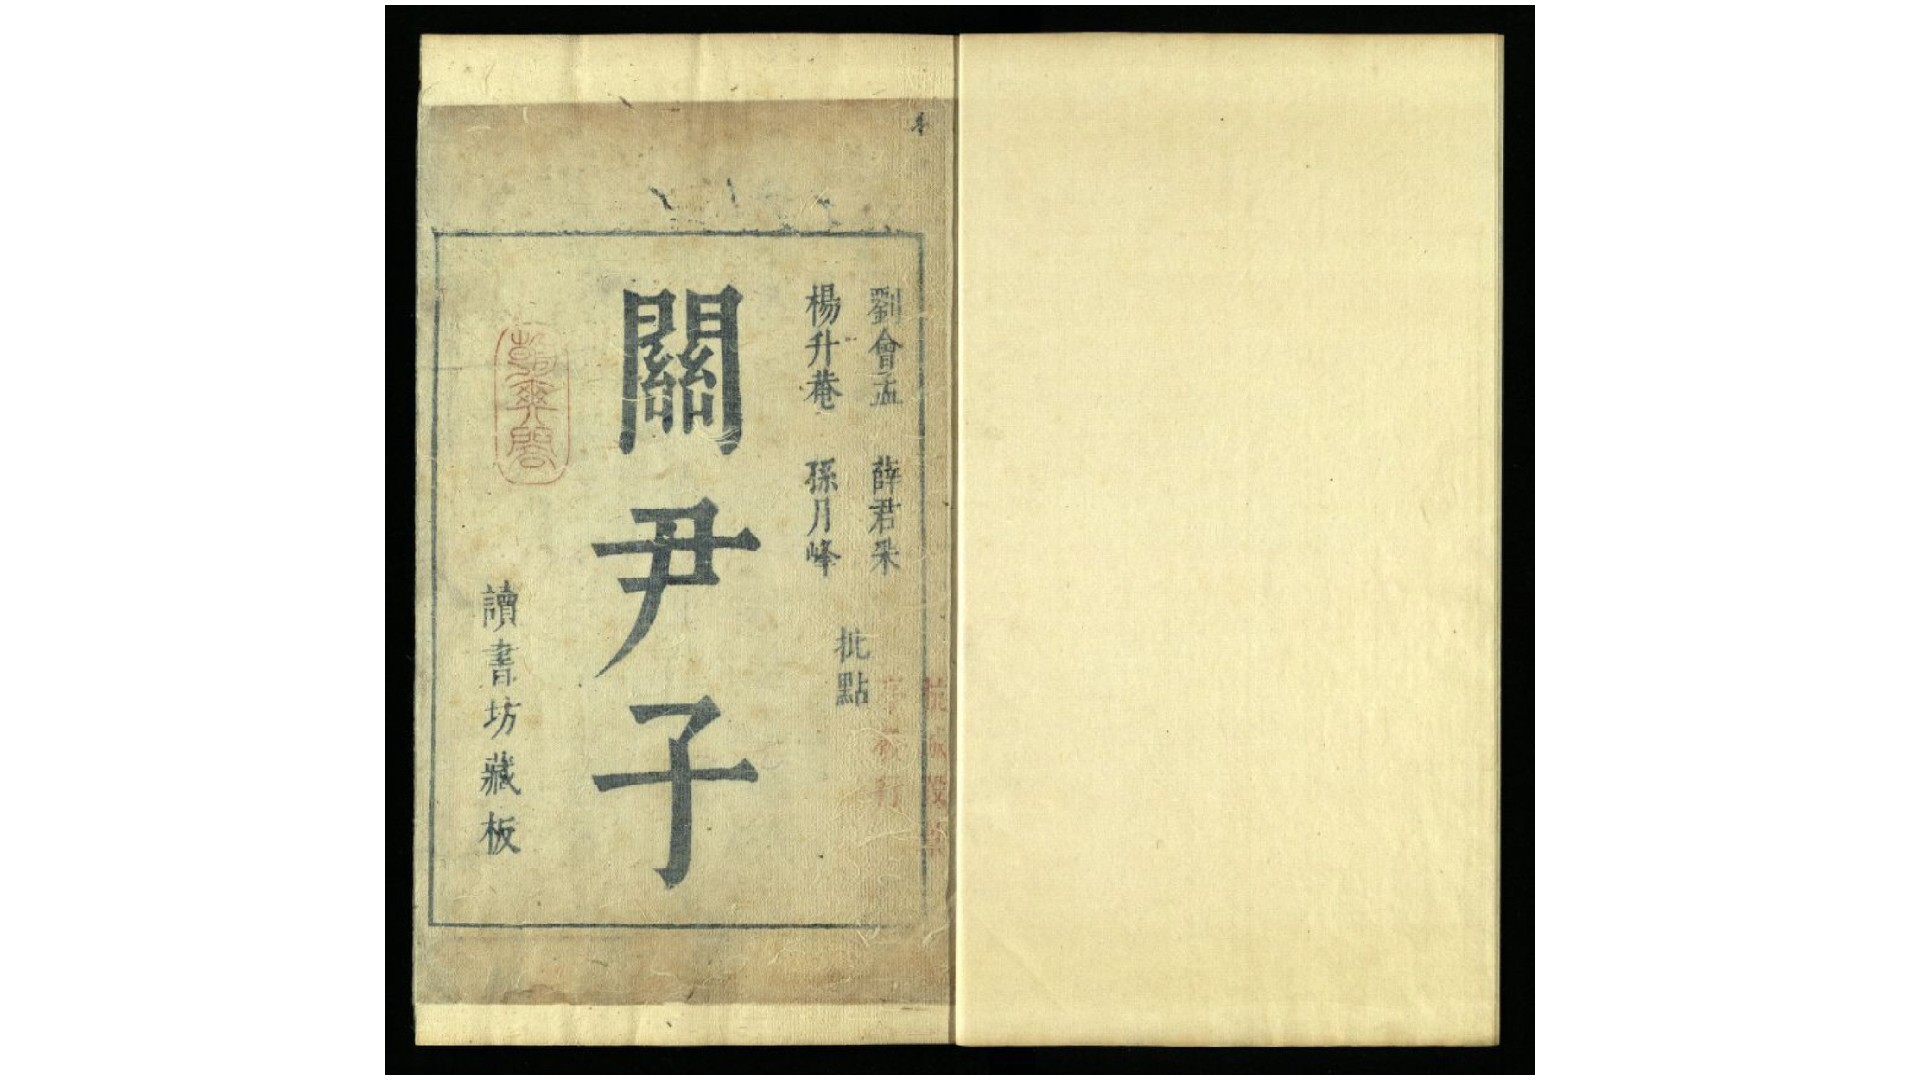 劉會孟　薛君采
楊升菴　孫月峰
批點
關尹子
讀書坊藏板